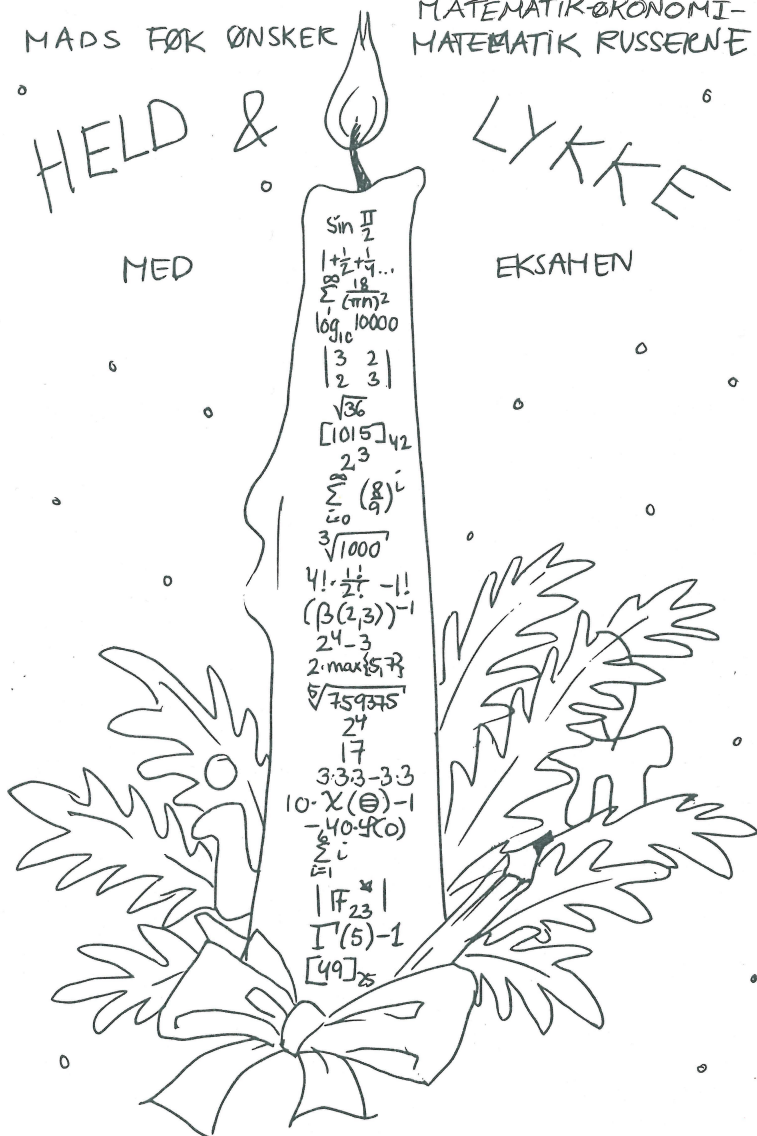 MATEMATIK-ØKONOMI-
MADS FØK ØNSKER MATEMATIK RUSSERNE
HELD & LYKKE
MED EKSAMEN
sin π/2
1+1/2+1/4...
∞∑1 18/(πn)²
log₁₀ 10000
|3 2|
|2 3|
√36
[1015]₄₂
2³
∞∑i=0 (8/9)ⁱ
³√1000
4!·1!/2! -1!
(β(2,3))⁻¹
2⁴-3
2·max{5,7}
⁵√759375
2⁴
17
3·3·3-3·3
10·χ(⊖)-1
-40·ζ(0)
6∑i=1 i
|𝔽₂₃*|
Γ(5)-1
[49]₂₅